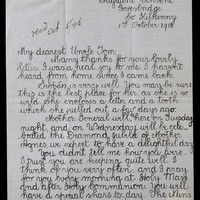 Convent
Goresbridge
Co Kilkenny
1st October 1918
recd Oct 5
My dearest Uncle Tom,
Many thanks for your lovely
letter. It was a real joy to me. I haven't
heard from home since I came back.
is very well. You may be sure
this is the best place for her, as she is so
wild. She enclosed a letter and a tooth
which she pulled out a few days ago.
Mother General will be here on Tuesday
night, and on Wednesday will be cele-
brated the Diamond Jubilee of Mother
Agnes. We expect to have a delightful day.
You didn't tell me how you were.
I trust you are keeping quite well. I
think of you very often, and I pray
for you every morning at Holy Mass
and after Holy Communion. You will
have a special share to day. The Nuns